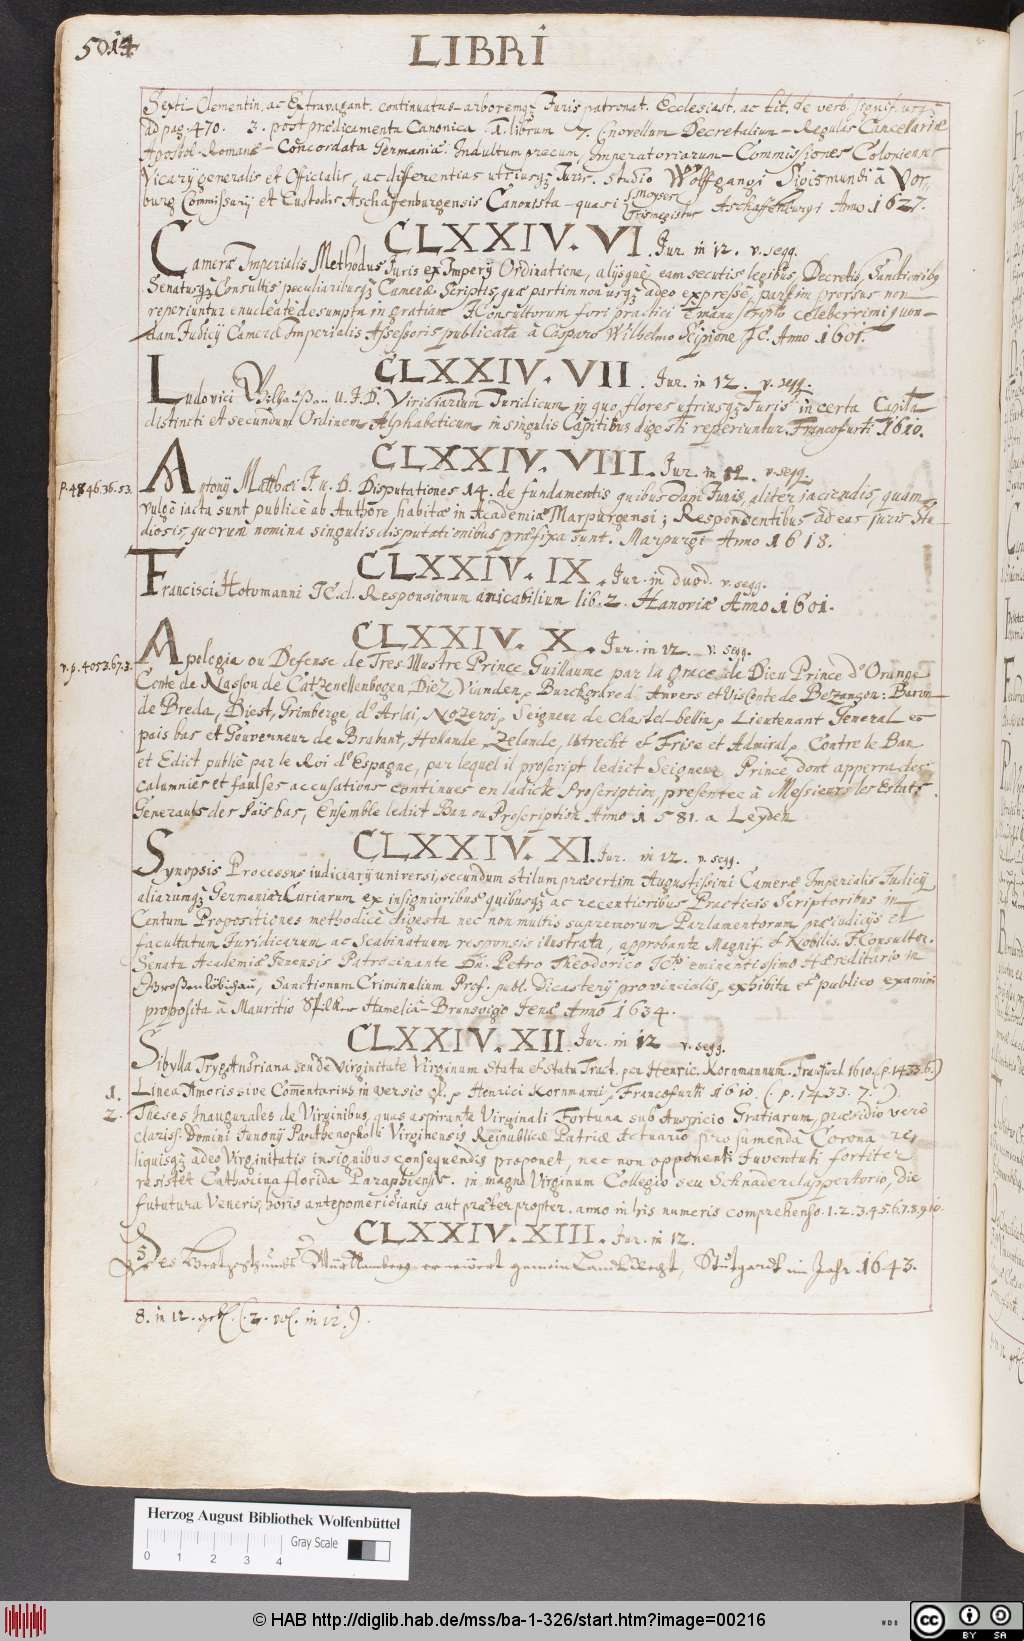 5014.
LIBRI
Sexti Clementin. ac Extravagant. continuatus arboremq; Juris patronat. Ecclesiast. ac tit. de verb. signif. usq;
ad pag. 470. 3. post prædicamenta Canonica 1. librum 7. (novellum Decretalium Regulas Cancellariæ
Apostol. Romanæ Concordata Germaniæ. Indultum precum, Imperatoriarum Commissiones Colonienses
Vicarij generalis et Officialis, ac differentias utriusq; Juris. studio Wolffgangi Sigismundi à Vor-
burg Commissarij et Custodis Aschaffenburgensis Canonista quasi Aschaffenburgi Anno 1627.
CLXXIV. VI. Jur. in 12. v. segg.
Cameræ Imperialis Methodus Juris ex Imperij Ordinatione, alijsquè eam secutis legibus Decretis, Sanctionibq
Senatusq; Consultis peculiaribusq; Cameræ Scriptis, quæ partim non usq; adeo expressè, partim prorsus non
reperiuntur enucleatè desumpta in gratiam JConsultorum fori practici è manuscripto celeberrimi quon-
dam Judicij Cameræ Imperialis Assessoris publicata à Casparo Wilhelmo Scipione JC. Anno 1601.
CLXXIV. VII. Jur. in 12. v. segg.
Ludovici U. J. D. Viridiarium Juridicum in quo flores utriusq; Juris in certa Capita
distincti et secundum Ordinem Alphabeticum in singulis Capitibus digesti reperiuntur. Francofurti 1610.
CLXXIV. VIII. Jur. in 12. v. segg.
p. 4846. 36. 53.
Antonij Matthæi J. u. D. Disputationes 14. de fundamentis quibusdam Juris, aliter jaciendis, quam
vulgò jacta sunt publicè ab Authore habitæ in Academia Marpurgensi; Respondentibus ad eas Juris Stu-
diosis, quorum nomina singulis disputationibus præfixa sunt. Marpurgi Anno 1618.
CLXXIV. IX. Jur. in duod. v. segg.
Francisci Hotomanni JC. d. Responsionum amicabilium lib. 2. Hanoviæ Anno 1601.
CLXXIV. X. Jur. in 12. v. segg.
v. p. 4052. 67. 3.
Apologia ou Defense de Tres Illustre Prince Guillaume par la grace de Dieu Prince d'Orange
Conte de Nassou de Catzenellenbogen, Diez, Vianden, Burchgrave d'Anvers et Visconte de Bezançon: Baron
de Breda, Diest, Grimberge d'Arlai, Nozeroi, Seigneur de Chastel-bellin, Lieutenant General es
pais bas et Gouverneur de Brabant, Hollande, Zelande, Utrecht et Frise et Admiral, Contre le Ban
et Edict publiè par le Roi d'Espagne, par lequel il proscript ledict Seigneur Prince dont apperra des
calumnies et faulses accusations contenues en ladicte Proscription, presentee à Messieurs les Estats
Generauls des Païs bas, Ensemble ledict Ban ou Proscription Anno 1581. a Leyden
CLXXIV. XI. Jur. in 12. v. segg.
Synopsis Processus iudiciarij universi, secundum stilum præsertim Augustissimi Cameræ Imperialis Judicij
aliarumq; Germaniæ Curiarum ex insignioribus quibusq; ac recentioribus Practicis Scriptoribus in
Centum Propositiones methodicè digesta nec non multis supremorum Parlamentorum præiudicijs et
facultatum Juridicarum ac Scabinatuum responsis illustrata, approbante Magnif. et Nobilis. JConsultor.
Senatu Academiæ Jenensis Patrocinante Dn. Petro Theodorico JCto eminentissimo Hæreditario in
Großen löbichau, Sanctionum Criminalium Prof. publ. Dicasterij provincialis, exhibita et publico examini
proposita à Mauritio Hameliâ-Brunsvigo Jenæ Anno 1634.
CLXXIV. XII. Jur. in 12 v. segg.
Sibylla Tryg-Andriana seu de Virginitate Virginum Statu et Statu Tract. per Henric. Kornmannum. Francfurt 1610. (p. 1433. 6.)
1. Linea Amoris sive Commentarius in versic. gl. p Henrici Kornmanni, Francofurti 1610. (p. 1433. 7.)
2. Theses Inaugurales de Virginibus, quas aspirante Virginali Fortuna sub Auspicio Gratiarum, præsidio verò
clariss. Domini Junonij Parthenopholi Virginensis Reipublicæ Patriæ Actuario pro sumenda Corona re-
liquisq; adeo Virginitatis insignibus consequendis proponet, nec non opponenti Juventuti fortiter
resistet Catharina florida Paraphiensis. in magno Virginum Collegio seu Schnaderclappertorio, die
fututura Veneris, horis antepomeridianis aut præter propter. anno in his numeris comprehenso. 1. 2. 3. 4. 5. 6. 7. 8. 9. 10.
CLXXIV. XIII. Jur. in 12.
Des Hertzogthumbs Würtlemberg ernewert gemein LandRecht, Stutgardt im Jahr 1643.
8. in 12. (2. vol. in 12.)
Herzog August Bibliothek Wolfenbüttel
Gray Scale
0 1 2 3 4
© HAB http://diglib.hab.de/mss/ba-1-326/start.htm?image=00216
WDB
cc BY SA